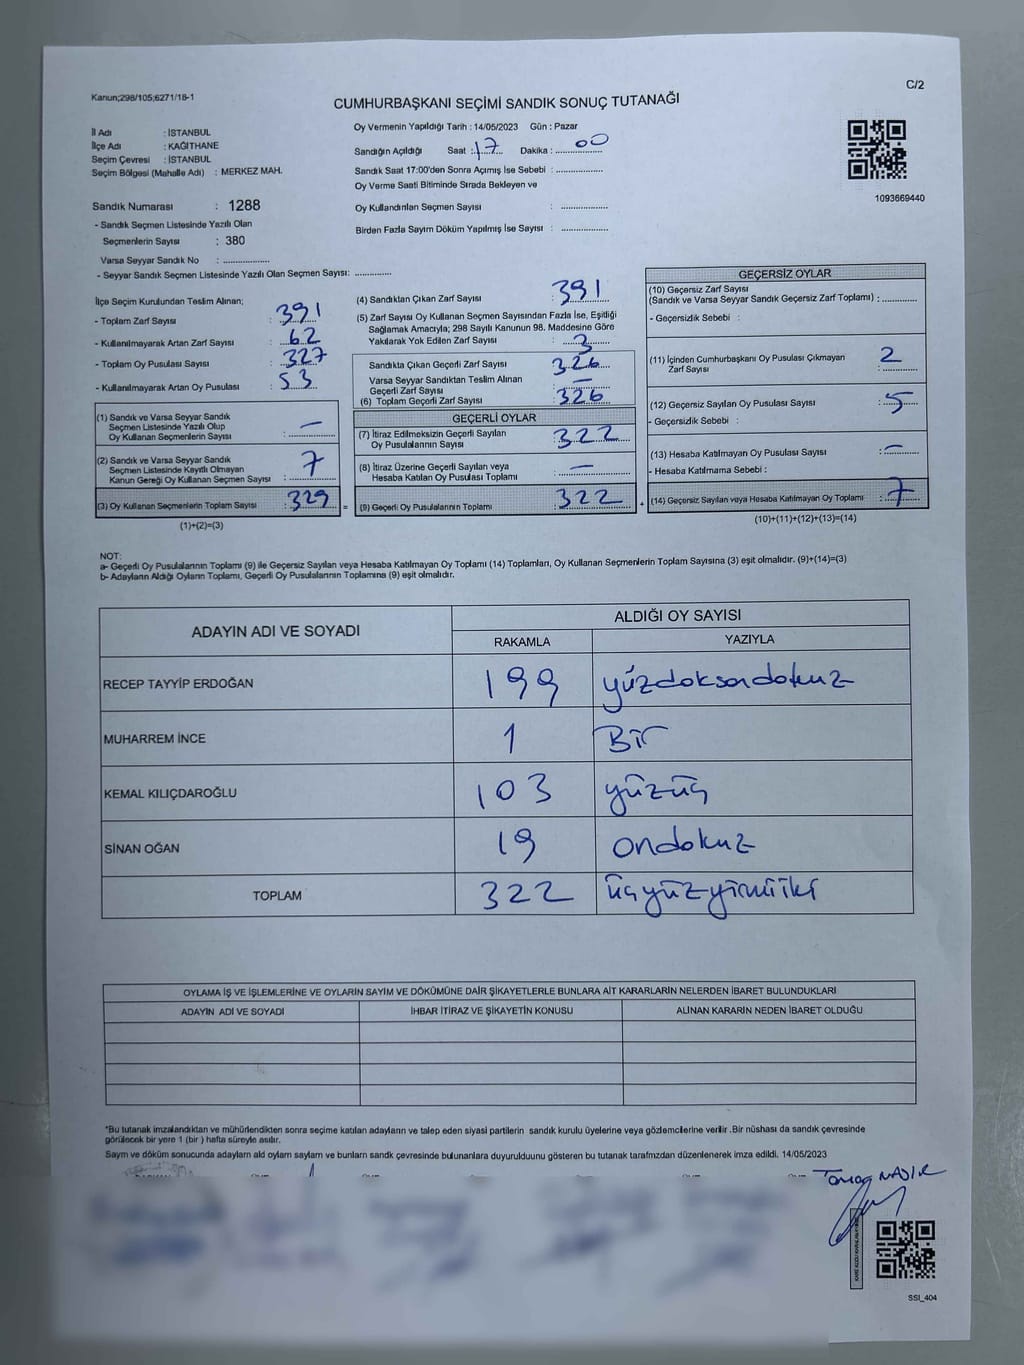 C/2
Kanun;298/105;6271/18-1
CUMHURBAŞKANI SEÇİMİ SANDIK SONUÇ TUTANAĞI
İl Adı : İSTANBUL
İlçe Adı : KAĞITHANE
Seçim Çevresi : İSTANBUL
Seçim Bölgesi (Mahalle Adı) : MERKEZ MAH.
Sandık Numarası : 1288
- Sandık Seçmen Listesinde Yazılı Olan
Seçmenlerin Sayısı : 380
Varsa Seyyar Sandık No : ....................
- Seyyar Sandık Seçmen Listesinde Yazılı Olan Seçmen Sayısı: ...............
Oy Vermenin Yapıldığı Tarih : 14/05/2023 Gün : Pazar
Sandığın Açıldığı Saat : 17 Dakika : 00
Sandık Saat 17:00'den Sonra Açımış İse Sebebi : ...................
Oy Verme Saati Bitiminde Sırada Bekleyen ve
Oy Kullandırılan Seçmen Sayısı : ...................
Birden Fazla Sayım Döküm Yapılmış İse Sayısı : ...................
1093669440
İlçe Seçim Kurulundan Teslim Alınan;
- Toplam Zarf Sayısı : 391
- Kullanılmayarak Artan Zarf Sayısı : 62
- Toplam Oy Pusulası Sayısı : 327
- Kullanılmayarak Artan Oy Pusulası : 53
(1) Sandık ve Varsa Seyyar Sandık
Seçmen Listesinde Yazılı Olup
Oy Kullanan Seçmenlerin Sayısı : —
(2) Sandık ve Varsa Seyyar Sandık
Seçmen Listesinde Kayıtlı Olmayan
Kanun Gereği Oy Kullanan Seçmen Sayısı : 7
(3) Oy Kullanan Seçmenlerin Toplam Sayısı : 329
(1)+(2)=(3)
=
(4) Sandıktan Çıkan Zarf Sayısı : 391
(5) Zarf Sayısı Oy Kullanan Seçmen Sayısından Fazla İse, Eşitliği
Sağlamak Amacıyla; 298 Sayılı Kanunun 98. Maddesine Göre
Yakılarak Yok Edilen Zarf Sayısı : 3
Sandıkta Çıkan Geçerli Zarf Sayısı : 326
Varsa Seyyar Sandıktan Teslim Alınan
Geçerli Zarf Sayısı : —
(6) Toplam Geçerli Zarf Sayısı : 326
GEÇERLİ OYLAR
(7) İtiraz Edilmeksizin Geçerli Sayılan
Oy Pusulalarının Sayısı : 322
(8) İtiraz Üzerine Geçerli Sayılan veya
Hesaba Katılan Oy Pusulası Toplamı : —
(9) Geçerli Oy Pusulalarının Toplamı : 322
+
GEÇERSİZ OYLAR
(10) Geçersiz Zarf Sayısı
(Sandık ve Varsa Seyyar Sandık Geçersiz Zarf Toplamı) : ..............
- Geçersizlik Sebebi :
(11) İçinden Cumhurbaşkanı Oy Pusulası Çıkmayan
Zarf Sayısı : 2
(12) Geçersiz Sayılan Oy Pusulası Sayısı : 5
- Geçersizlik Sebebi :
(13) Hesaba Katılmayan Oy Pusulası Sayısı : —
- Hesaba Katılmama Sebebi :
(14) Geçersiz Sayılan veya Hesaba Katılmayan Oy Toplamı : 7
(10)+(11)+(12)+(13)=(14)
NOT:
a- Geçerli Oy Pusulalarının Toplamı (9) ile Geçersiz Sayılan veya Hesaba Katılmayan Oy Toplamı (14) Toplamları, Oy Kullanan Seçmenlerin Toplam Sayısına (3) eşit olmalıdır. (9)+(14)=(3)
b- Adayların Aldığı Oyların Toplamı, Geçerli Oy Pusulalarının Toplamına (9) eşit olmalıdır.
ADAYIN ADI VE SOYADI
ALDIĞI OY SAYISI
RAKAMLA YAZIYLA
RECEP TAYYİP ERDOĞAN 199 yüzdoksandokuz
MUHARREM İNCE 1 Bir
KEMAL KILIÇDAROĞLU 103 yüzüç
SİNAN OĞAN 19 ondokuz
TOPLAM 322 üçyüzyirmiiki
OYLAMA İŞ VE İŞLEMLERİNE VE OYLARIN SAYIM VE DÖKÜMÜNE DAİR ŞİKAYETLERLE BUNLARA AİT KARARLARIN NELERDEN İBARET BULUNDUKLARI
ADAYIN ADI VE SOYADI İHBAR İTİRAZ VE ŞİKAYETİN KONUSU ALINAN KARARIN NEDEN İBARET OLDUĞU
*Bu tutanak imzalandıktan ve mühürlendikten sonra seçime katılan adayların ve talep eden siyasi partilerin sandık kurulu üyelerine veya gözlemcilerine verilir .Bir nüshası da sandık çevresinde
görülecek bir yere 1 (bir ) hafta süreyle asılır.
Sayım ve döküm sonucunda adayların ald oyların sayların ve bunların sandk çevresinde bulunanlara duyurulduunu gösteren bu tutanak tarafmzdan düzenlenerek imza edildi. 14/05/2023
SSI_404